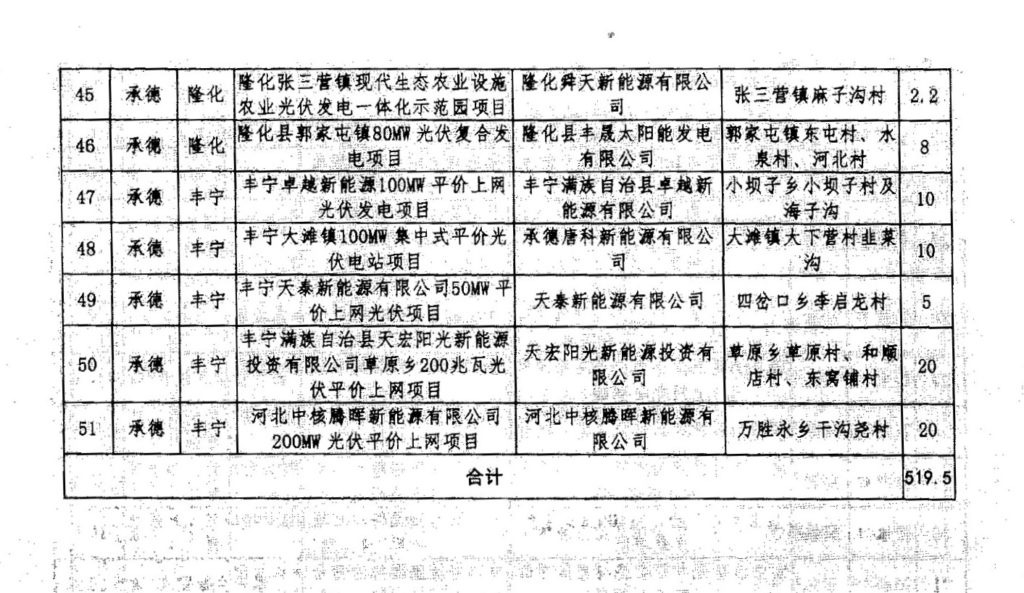 45 承德 隆化 隆化张三营镇现代生态农业设施 隆化舜天新能源有限公 张三营镇麻子沟村 2.2
农业光伏发电一体化示范园项目 司
46 承德 隆化 隆化县郭家屯镇80MW光伏复合发 隆化县丰晟太阳能发电 郭家屯镇东屯村、水 8
电项目 有限公司 泉村、河北村
47 承德 丰宁 丰宁卓越新能源100MW平价上网 丰宁满族自治县卓越新 小坝子乡小坝子村及 10
光伏发电项目 能源有限公司 海子沟
48 承德 丰宁 丰宁大滩镇100MW集中式平价光 承德唐科新能源有限公 大滩镇大下营村韭菜 10
伏电站项目 司 沟
49 承德 丰宁 丰宁天泰新能源有限公司50MW平 天泰新能源有限公司 四岔口乡李启龙村 5
价上网光伏项目
50 承德 丰宁 丰宁满族自治县天宏阳光新能源 天宏阳光新能源投资有 草原乡草原村、和顺 20
投资有限公司草原乡200兆瓦光 限公司 店村、东窝铺村
伏平价上网项目
51 承德 丰宁 河北中核腾晖新能源有限公司 河北中核腾晖新能源有 万胜永乡干沟尧村 20
200MW光伏平价上网项目 限公司
合计 519.5